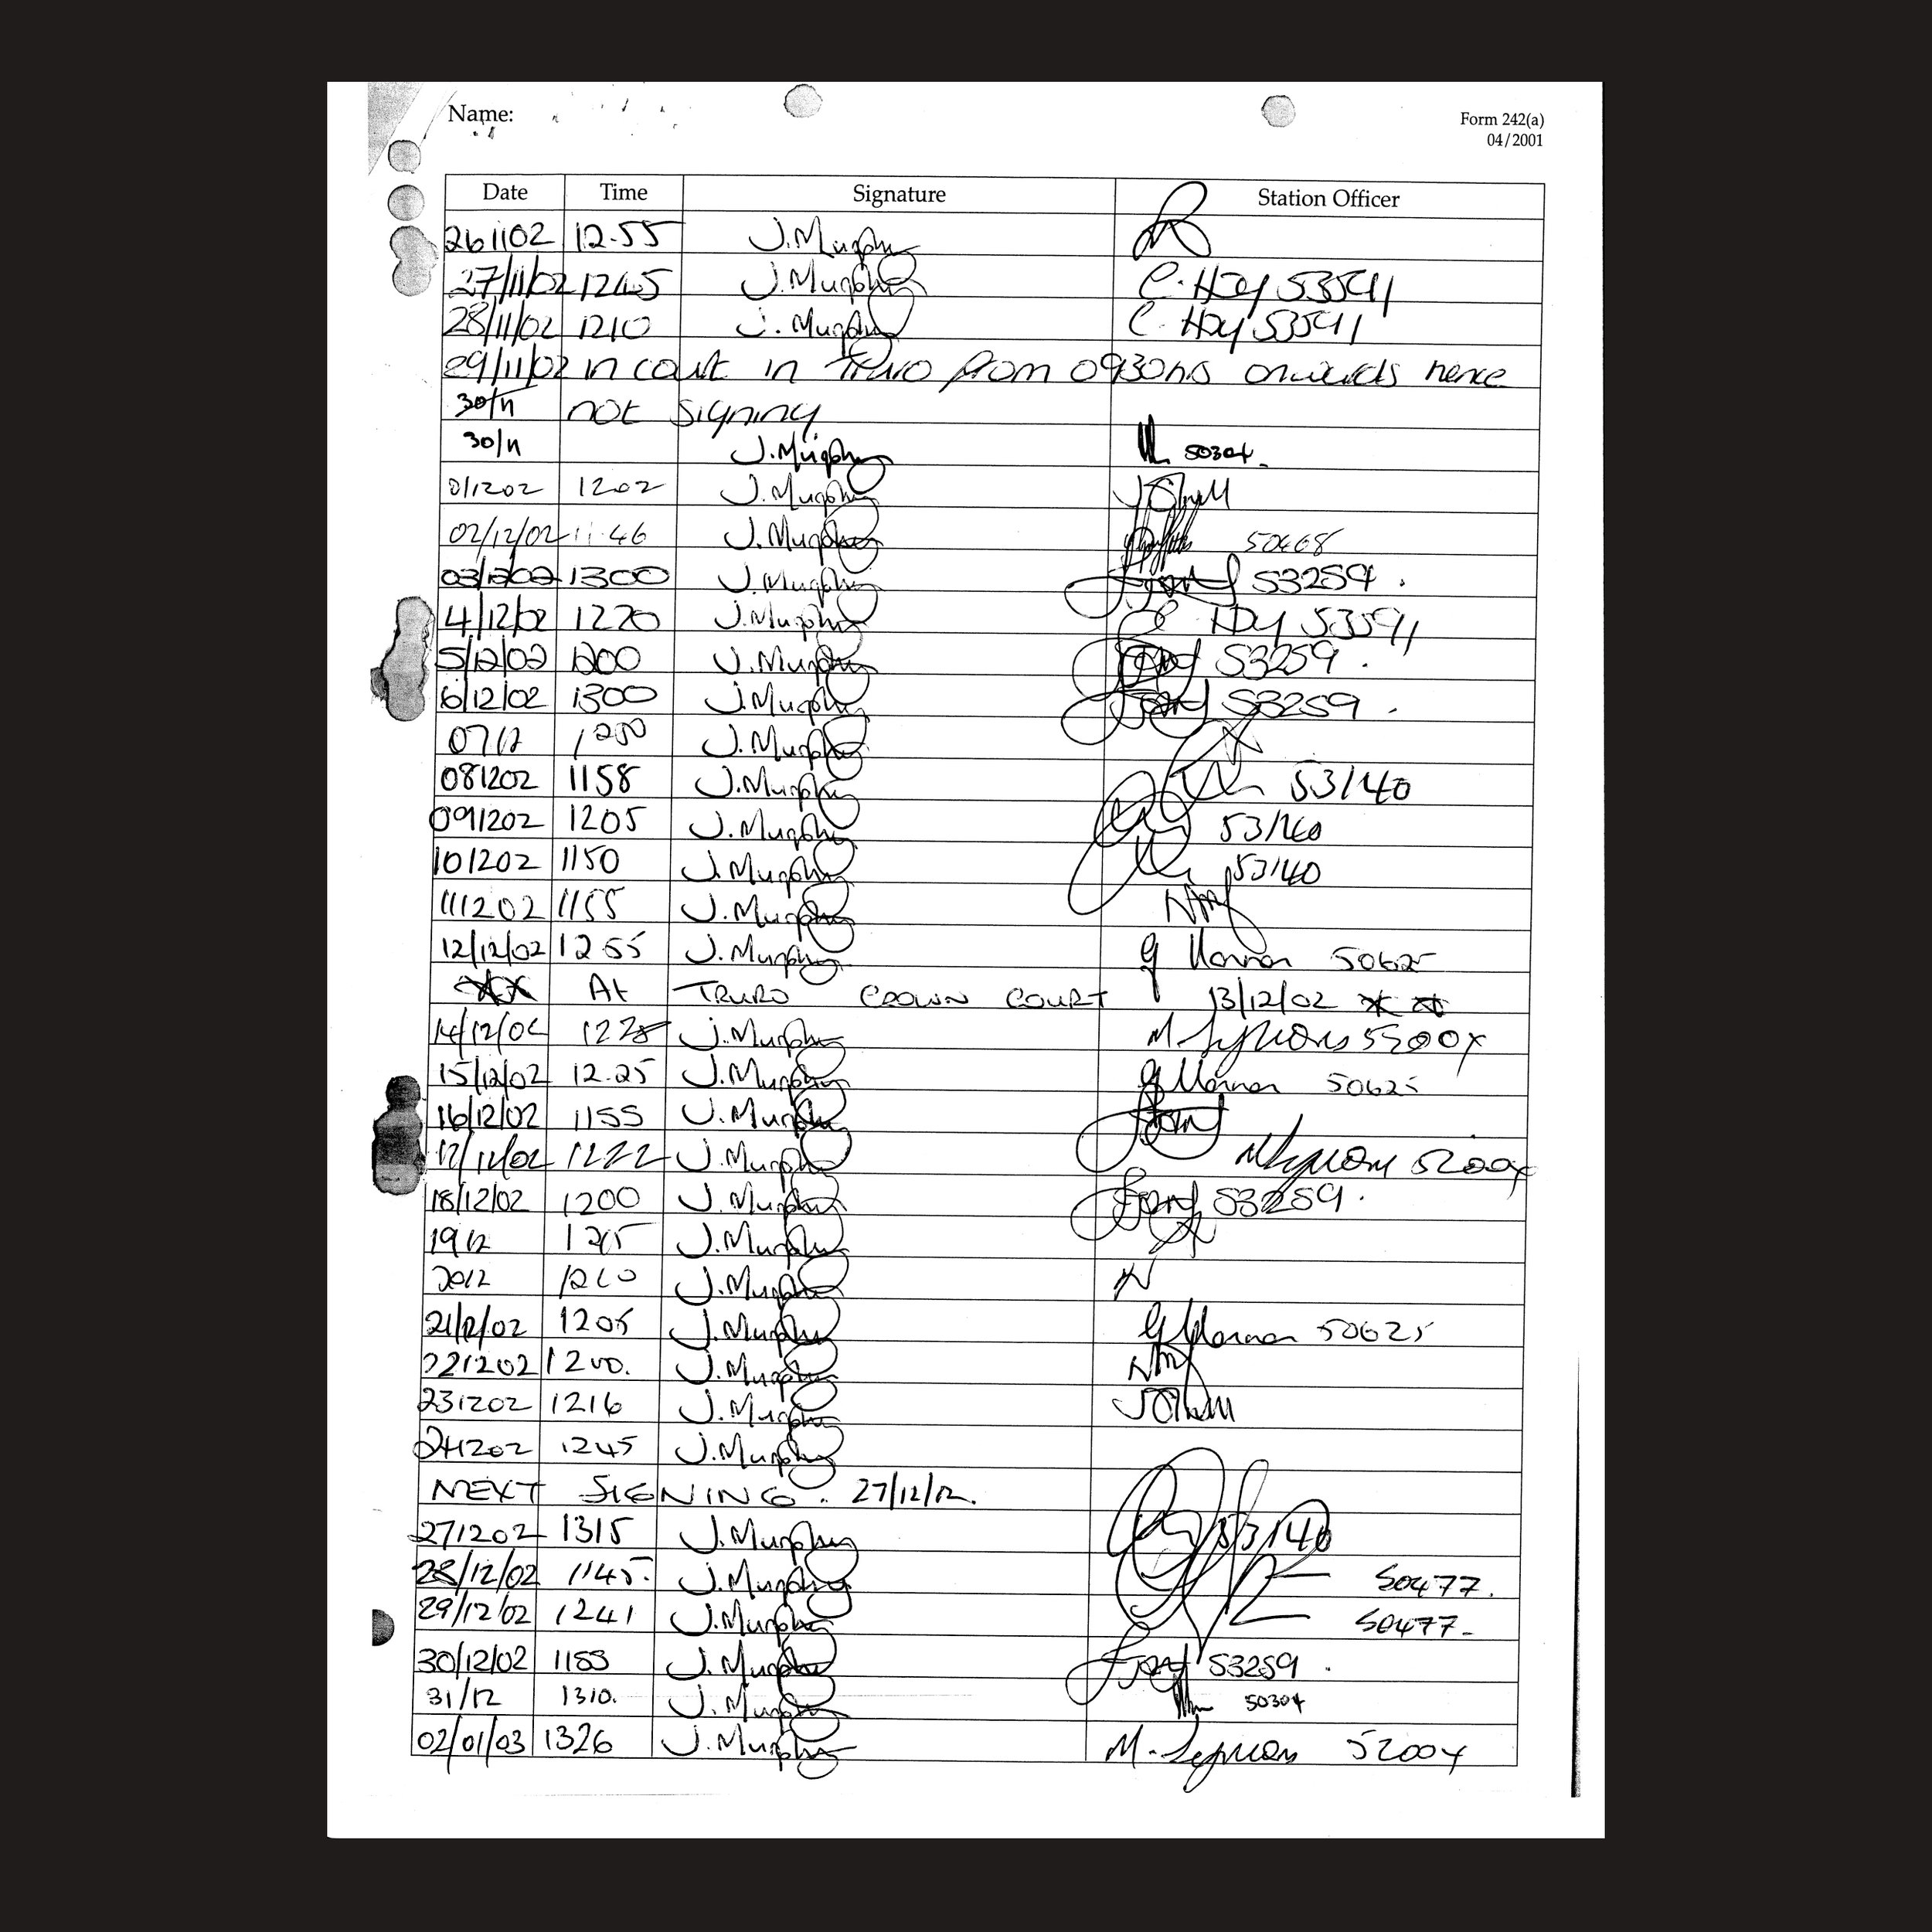 Name:
Form 242(a)
04/2001
Date Time Signature Station Officer
261102 12.55 J.Murphy
27/11/02 1245 J.Murphy C. 53591
28/11/02 1210 J. Murphy C. 53591
29/11/02 in court in Truro from 0930hrs onwards hence
30/11 not signing
30/11 J.Murphy 50304.
011202 1202 J.Murphy
02/12/02 11.46 J.Murphy 50468
03/12/02 1300 J.Murphy 53259.
4/12/02 1220 J.Murphy 53591
5/12/02 1200 J.Murphy 53259.
6/12/02 1300 J.Murphy 53259.
07/12 1200 J.Murphy
081202 1158 J.Murphy 53140
091202 1205 J.Murphy 53140
101202 1150 J.Murphy 53140
111202 1155 J.Murphy
12/12/02 1255 J.Murphy 50625
At TRURO CROWN COURT 13/12/02
14/12/02 1228 J.Murphy M 5200x
15/12/02 12.25 J.Murphy 50625
16/12/02 1155 J.Murphy
17/12/02 1222 J.Murphy 5200x
18/12/02 1200 J.Murphy 53259.
19/12 1215 J.Murphy
20/12 1210 J.Murphy
21/12/02 1205 J.Murphy 50625
221202 1200. J.Murphy
231202 1216 J.Murphy
241202 1245 J.Murphy
NEXT SIGNING. 27/12/12.
271202 1315 J.Murphy 53140
28/12/02 1145. J.Murphy 50477.
29/12/02 1241 J.Murphy 50477.
30/12/02 1155 J.Murphy 53259.
31/12 1310. J.Murphy 50304
02/01/03 1326 J.Murphy M. 5200x